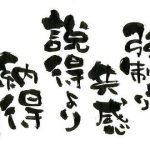 強制より
共感
説得より
納得